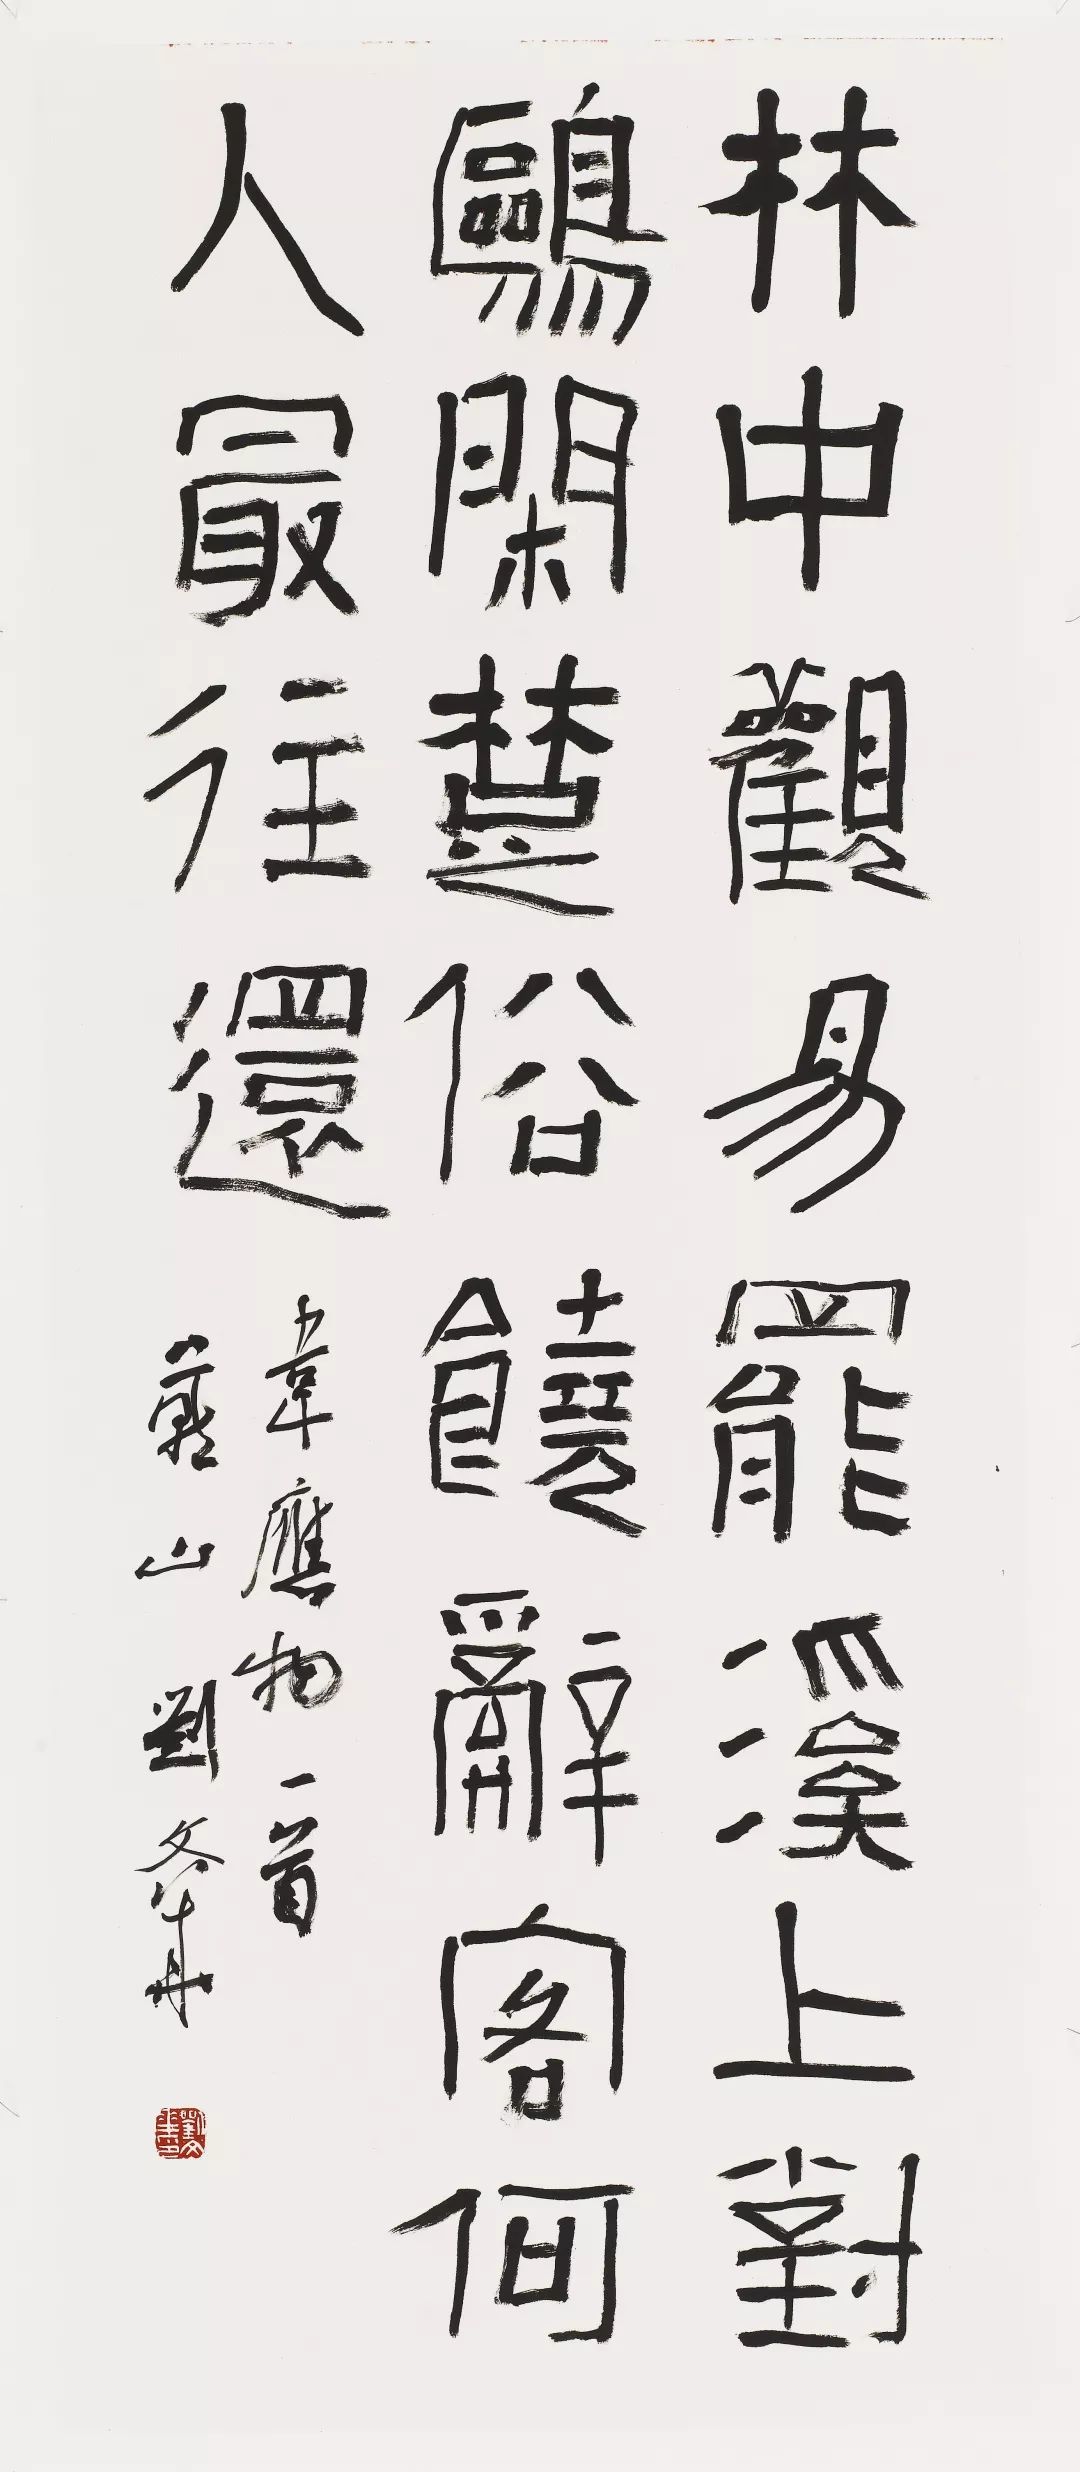 林中觀易罷溪上對
鷗閑楚俗饒辭客何
人最往還
韋應物一首
山劉文華